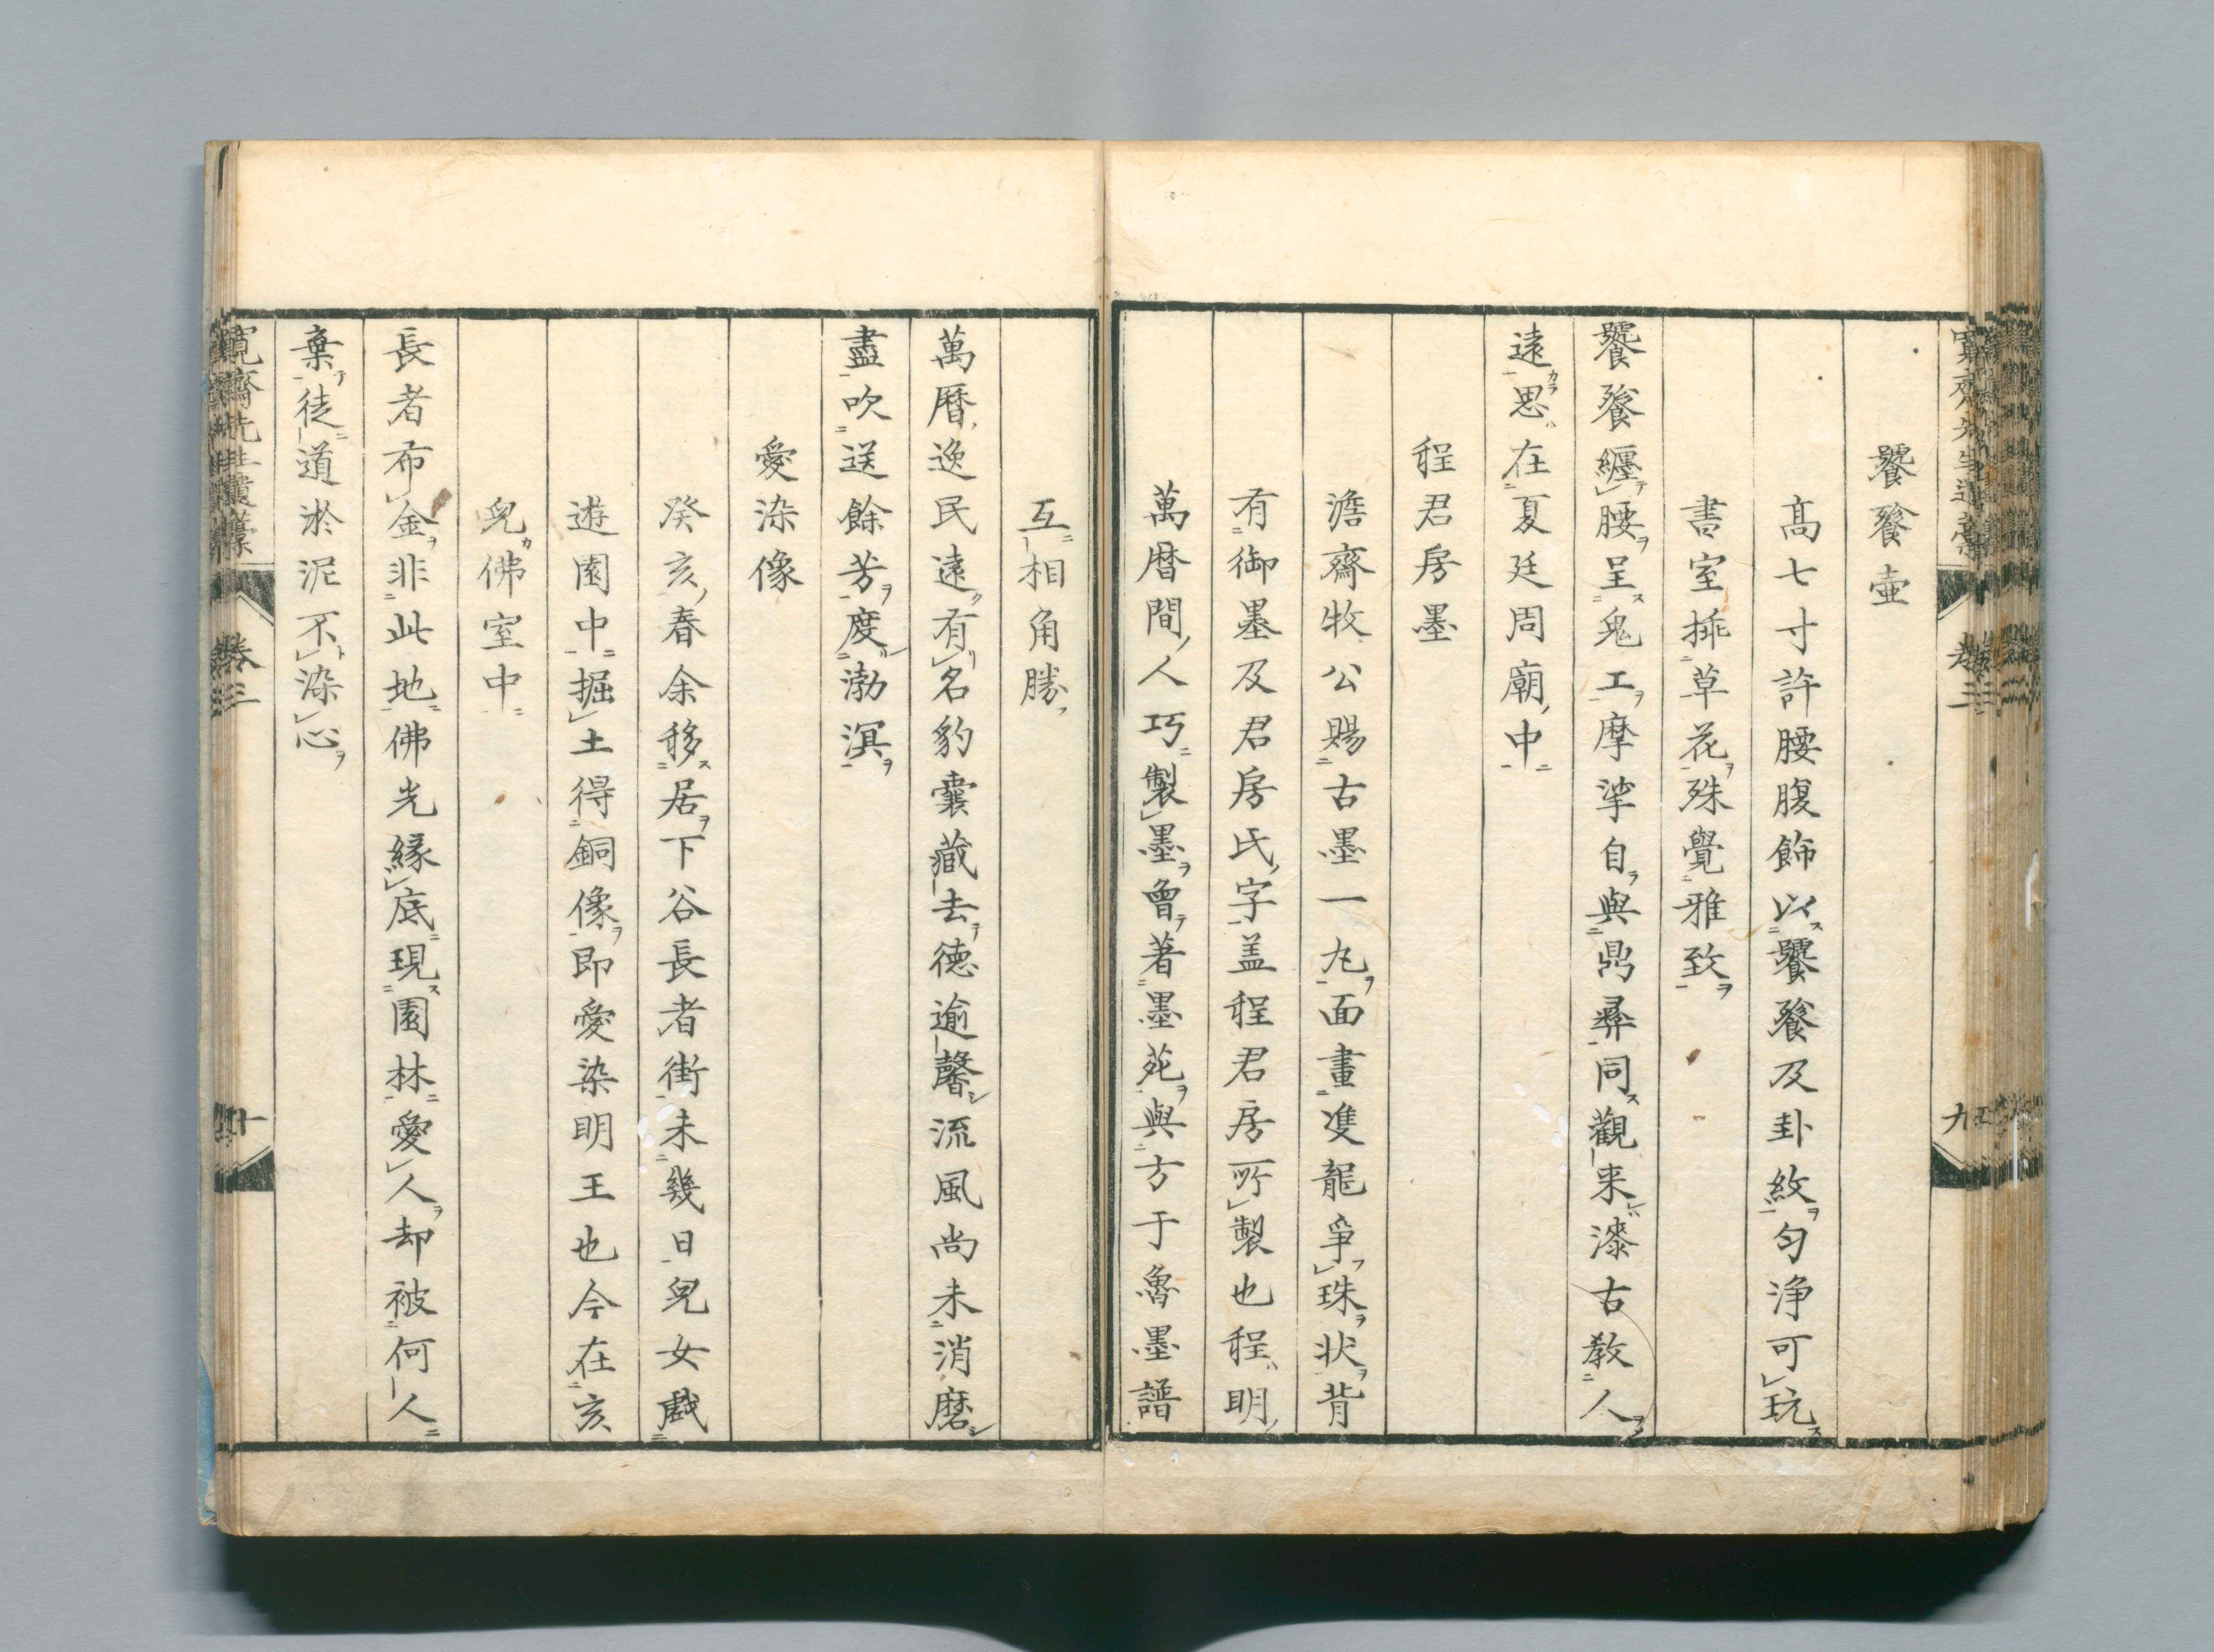 饕餮壷
高七寸許腰腹飾以饕餮及卦紋匀浄可玩
書室挿草花殊覺雅致
饕餮纒腰呈鬼工摩挲自與鼎彛同觀来漆古教人
遠思在夏廷周廟中
程君房墨
澹齋牧公賜古墨一丸面畫雙龍爭珠状背
有御墨及君房氏字盖程君房所製也程明
萬暦間人巧製墨曾著墨苑與方于魯墨譜
互相角勝
萬暦逸民遠有名豹嚢藏去德逾馨流風尚未消磨
盡吹送餘芳度渤溟
愛染像
癸亥春余移居下谷長者街未幾日兒女戯
遊園中掘土得銅像即愛染明王也今在亥
兒佛室中
長者布金非此地佛光縁底現園林愛人却被何人
棄徒道淤泥不染心
寛齋先生遺稾
卷三
十